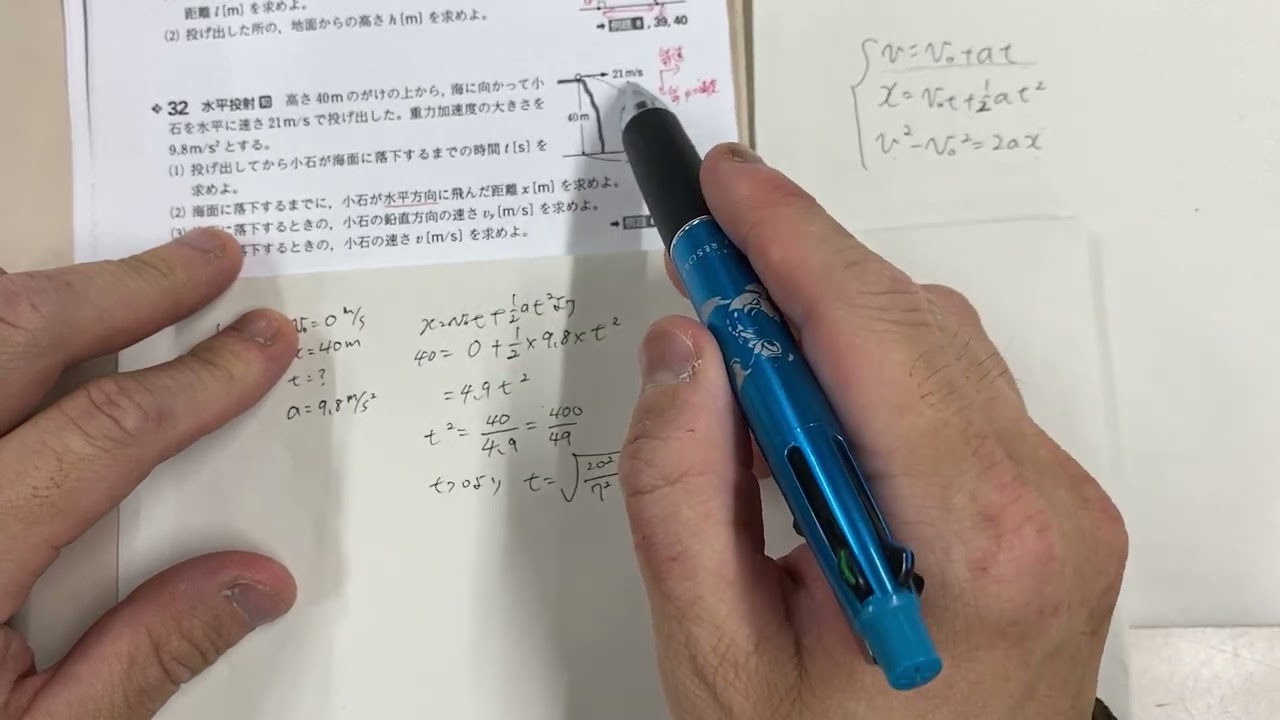 距離 l〔m〕を求めよ。
(2) 投げ出した所の，地面からの高さ h〔m〕を求めよ。
39, 40
❖ 32 水平投射 高さ 40m のがけの上から，海に向かって小
石を水平に速さ 21m/s で投げ出した。重力加速度の大きさを
9.8m/s² とする。
(1) 投げ出してから小石が海面に落下するまでの時間 t〔s〕を
求めよ。
(2) 海面に落下するまでに，小石が水平方向に飛んだ距離 x〔m〕を求めよ。
(3) に落下するときの，小石の鉛直方向の速さ vy〔m/s〕を求めよ。
落下するときの，小石の速さ v〔m/s〕を求めよ。
21m/s
40m
等速
v=v₀+at
x=v₀t+1/2at²
v²-v₀²=2ax
v₀=0m/s
x=40m
t=?
a=9.8m/s²
x=v₀t+1/2at²より
40=0+1/2×9.8×t²
=4.9t²
t²=40/4.9=400/49
t>0より t=√20²/7²